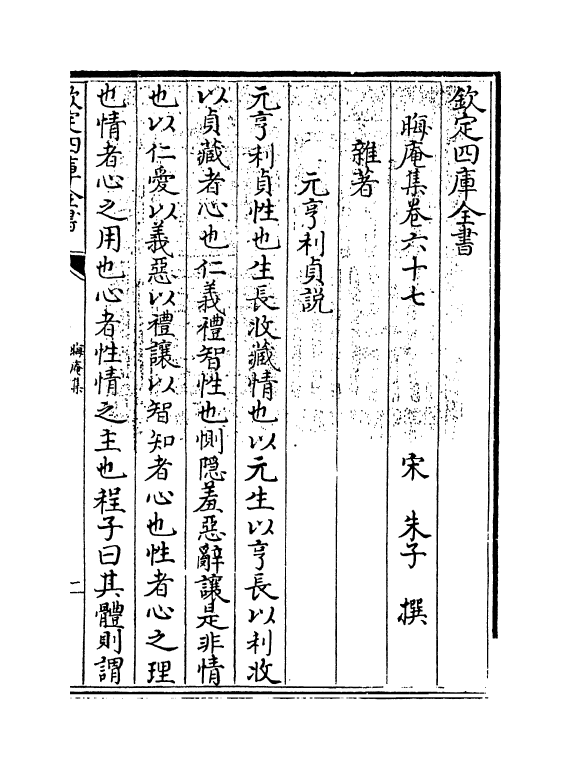 欽定四庫全書
晦庵集卷六十七　宋　朱子　撰
雜著
元亨利貞説
元亨利貞性也生長收藏情也以元生以亨長以利收
以貞藏者心也仁義禮智性也惻隱羞惡辭讓是非情
也以仁愛以義惡以禮讓以智知者心也性者心之理
也情者心之用也心者性情之主也程子曰其體則謂
欽定四庫全書
晦庵集